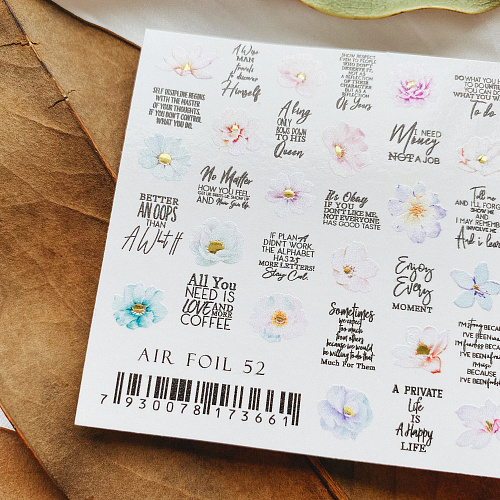 A Wise
MAN
travels
to discover
Himself
SHOW RESPECT
EVEN TO PEOPLE
WHO DON'T
DESERVE IT,
NOT AS
A REFLECTION
OF THEIR
CHARACTER
BUT AS A
REFLECTION
Of Yours
DO WHAT YOU H
TO DO UNTIL
YOU CAN DO
WHAT YOU W
To do
SELF DISCIPLINE BEGINS
WITH THE MASTER
OF YOUR THOUGHTS.
IF YOU DON'T CONTROL
WHAT YOU DO,
A king
ONLY
BOWS DOWN
TO HIS
Queen
I NEED
Money
NOT A JOB
No Matter
HOW YOU FEEL,
GET UP, DRESS UP, SHOW UP
AND Never Give Up.
It's Okay
IF YOU
DON'T LIKE ME,
NOT EVERYONE
HAS GOOD TASTE
Tell me
AND I'LL FORG
SHOW ME
AND I
MAY REMEMBER
INVOLVE ME
And i learn
BETTER
AN OOPS
THAN
A What If
IF PLAN A
DIDN'T WORK,
THE ALPHABET
HAS 25
MORE LETTERS!
Stay Cool.
Enjoy
Every
MOMENT
All You
NEED IS
LOVE AND
MORE
COFFEE
Sometimes
we expect
too much
from others
because we would
be willing to do that
Much For Them
I'm strong BECAU
I'VE BEEN
I'm fearless BECAU
I'VE BEEN
BECAUSE
I'VE BEEN
A PRIVATE
Life
IS
A Happy
LIFE
AIR FOIL 52
7 930078 173661